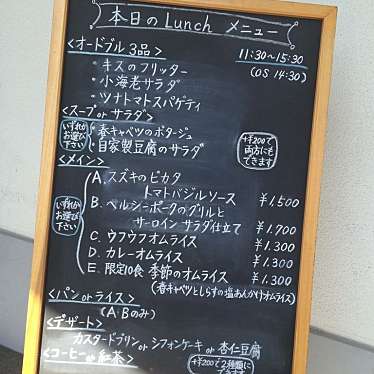 本日のLunch メニュー
<オードブル 3品>
11:30~15:30
(OS 14:30)
・キスのフリッター
・小海老サラダ
・ツナトマトスパゲティ
<スープorサラダ>
いずれかお選び下さい
・春キャベツのポタージュ
・自家製豆腐のサラダ
+¥200で
両方にも
できます
<メイン>
いずれかお選び下さい
A. スズキのピカタ
トマトバジルソース ¥1.500
B. ヘルシーポークのグリルと
サーロイン サラダ仕立て ¥1.700
C. ウフウフオムライス ¥1.300
D. カレーオムライス ¥1.300
E. 限定10食 季節のオムライス ¥1.300
(春キャベツとしらすの塩あんかけオムライス)
<パンorライス>
(A・Bのみ)
<デザート>
カスタードプリン or シフォンケーキ or 杏仁豆腐
<コーヒーor紅茶>
+¥200で2種類に